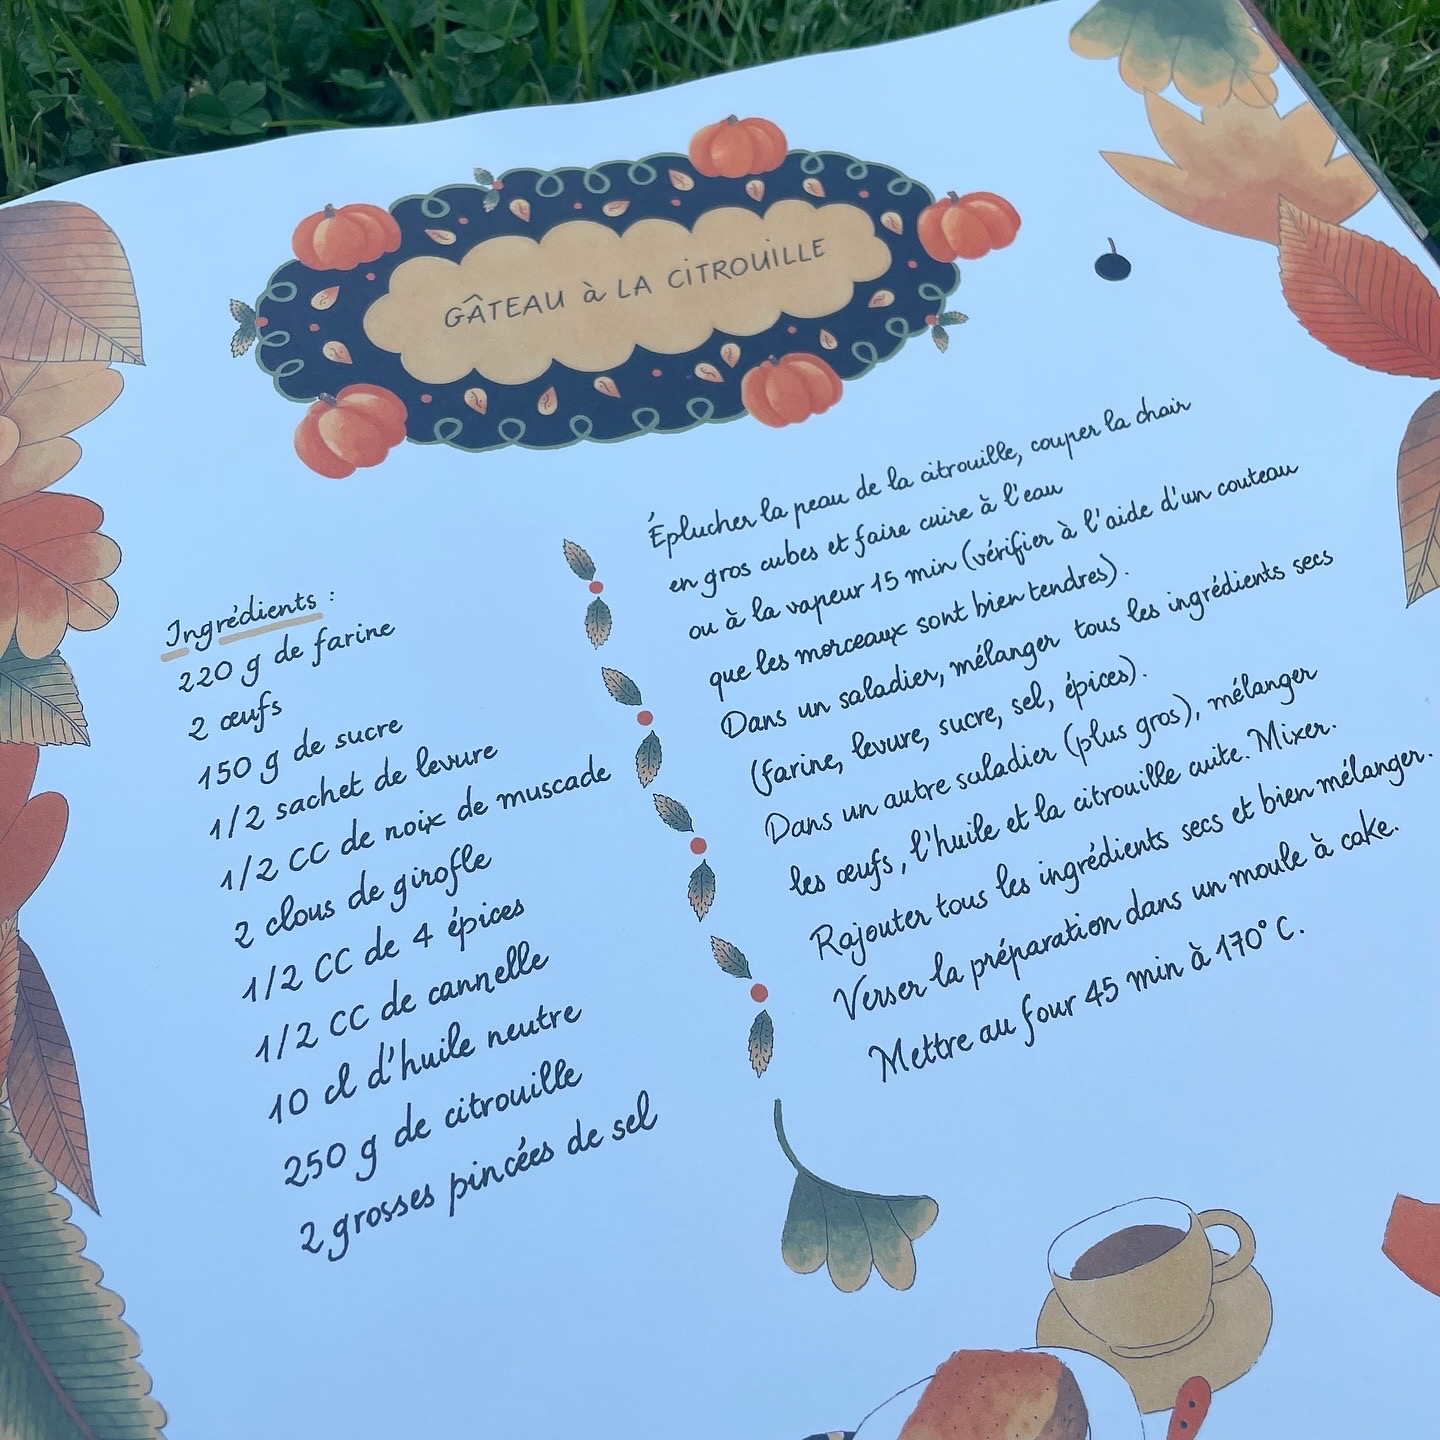 GÂTEAU à LA CiTROUiLLE
Ingrédients :
220 g de farine
2 œufs
150 g de sucre
1/2 sachet de levure
1/2 CC de noix de muscade
2 clous de girofle
1/2 CC de 4 épices
1/2 CC de cannelle
10 cl d'huile neutre
250 g de citrouille
2 grosses pincées de sel
Éplucher la peau de la citrouille, couper la chair
en gros cubes et faire cuire à l'eau
ou à la vapeur 15 min (vérifier à l'aide d'un couteau
que les morceaux sont bien tendres).
Dans un saladier, mélanger tous les ingrédients secs
(farine, levure, sucre, sel, épices).
Dans un autre saladier (plus gros), mélanger
les œufs, l'huile et la citrouille cuite. Mixer.
Rajouter tous les ingrédients secs et bien mélanger.
Verser la préparation dans un moule à cake.
Mettre au four 45 min à 170°C.